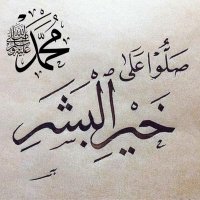 صَلُّوا عَلَى
خَيْرِ الْبَشَرِ
مُحَمَّد ﷺ